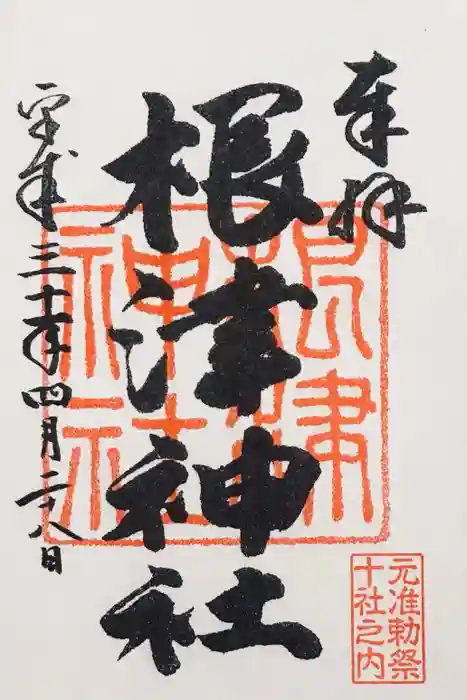 奉拝
根津神社
平成三十年四月二十八日
根津
神社
元准勅祭
十社之内